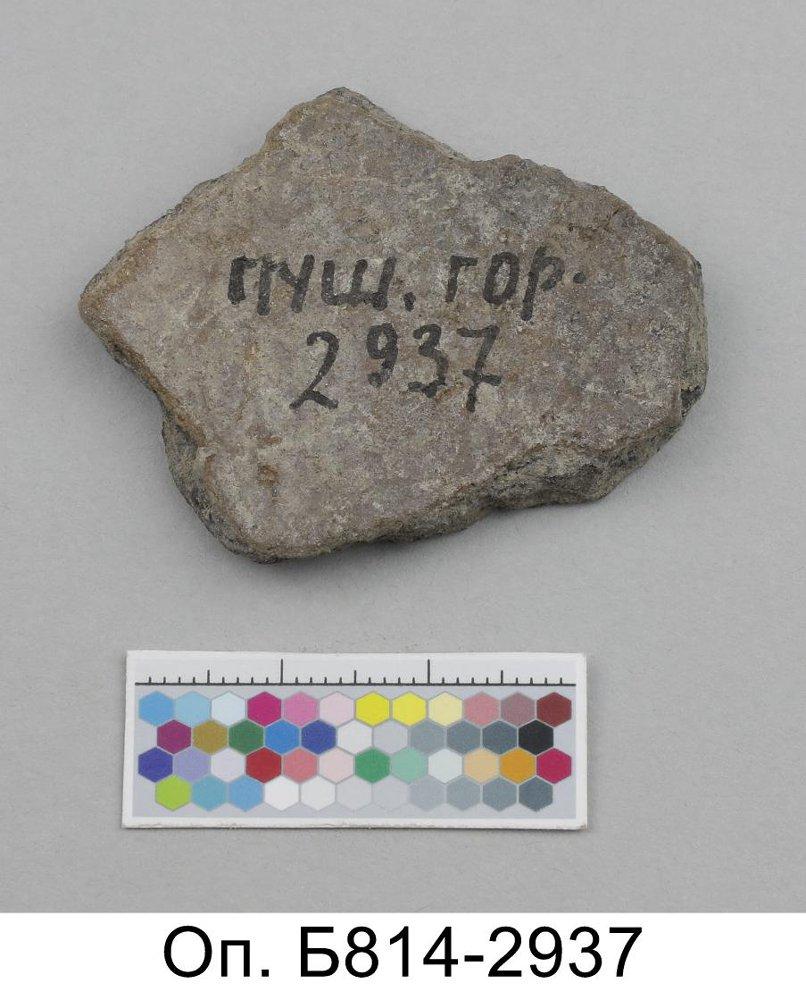 пуш. гор.
2937
Оп. Б814-2937